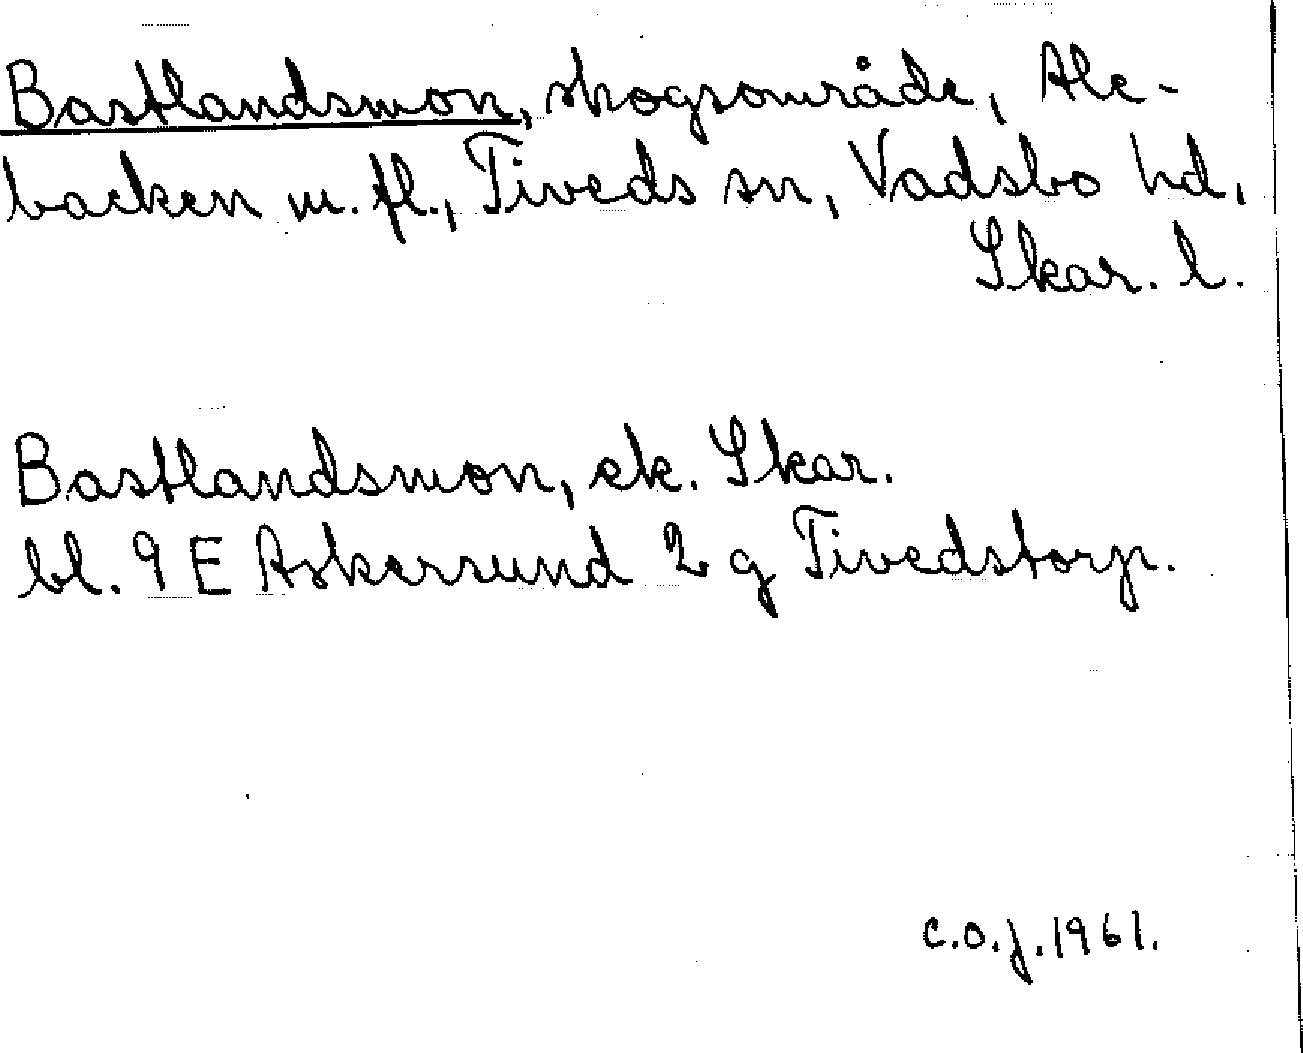 Bastlandsmon, skogsområde, Ale-
backen m. fl., Tiveds sn, Vadsbo hd,
Skar. l.
Bastlandsmon, ek. Skar.
bl. 9 E Askersund 2 g Tivedstorp.
C.O.J. 1961.